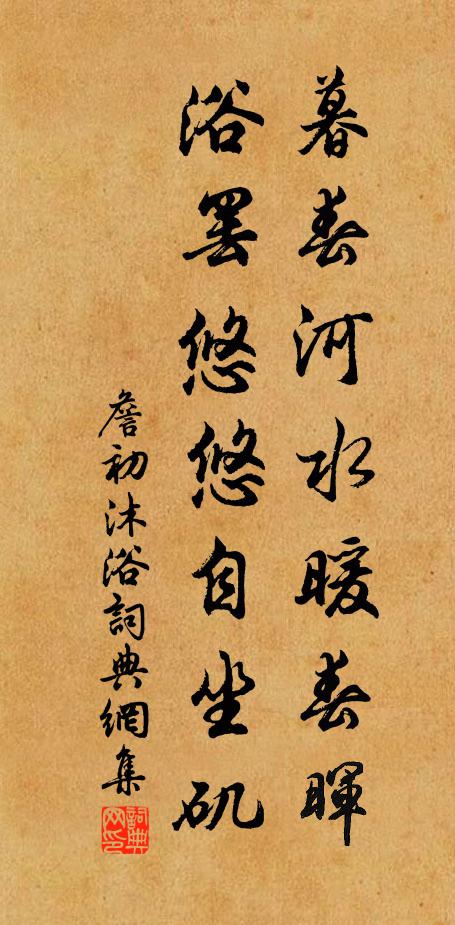 暮春河水暖春暉
浴罢悠悠自坐矶
詹初沐浴詞典網集
詞典网印